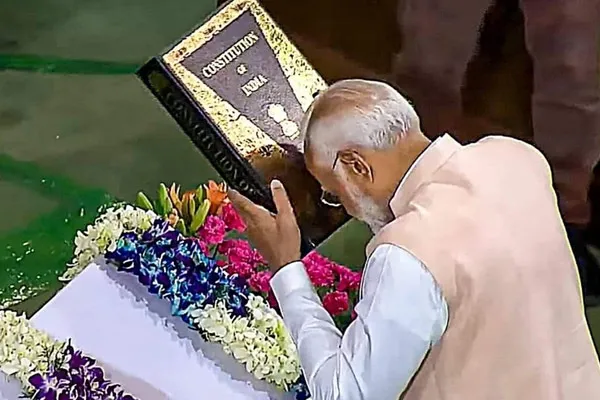 CONSTITUTION
OF
INDIA
CONSTITUTION OF